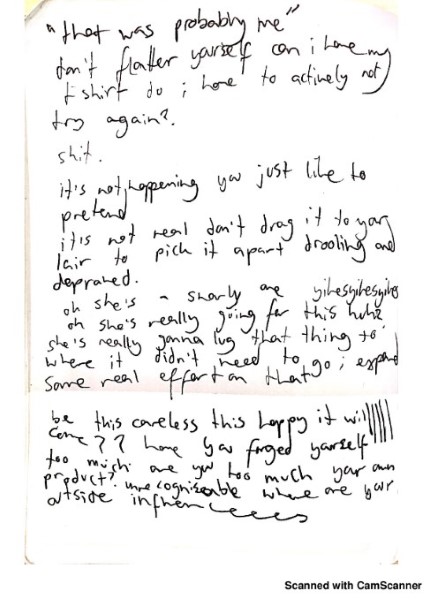 "that was probably me"
don't flatter yourself can i have my
t shirt do i have to actively not
try again?
shit.
it's not happening you just like to
pretend
it is not real don't drag it to your
lair to pick it apart drooling and
depraved.
oh she's a snarly one yikesyikesyikes
oh she's really going for this huh?
she's really gonna lug that thing to
where it didn't need to go; expend
some real effort on that
be this careless this happy it will
come?? have you forged yourself
too much? are you too much your own
product? unrecognisable where are your
outside influences
Scanned with CamScanner